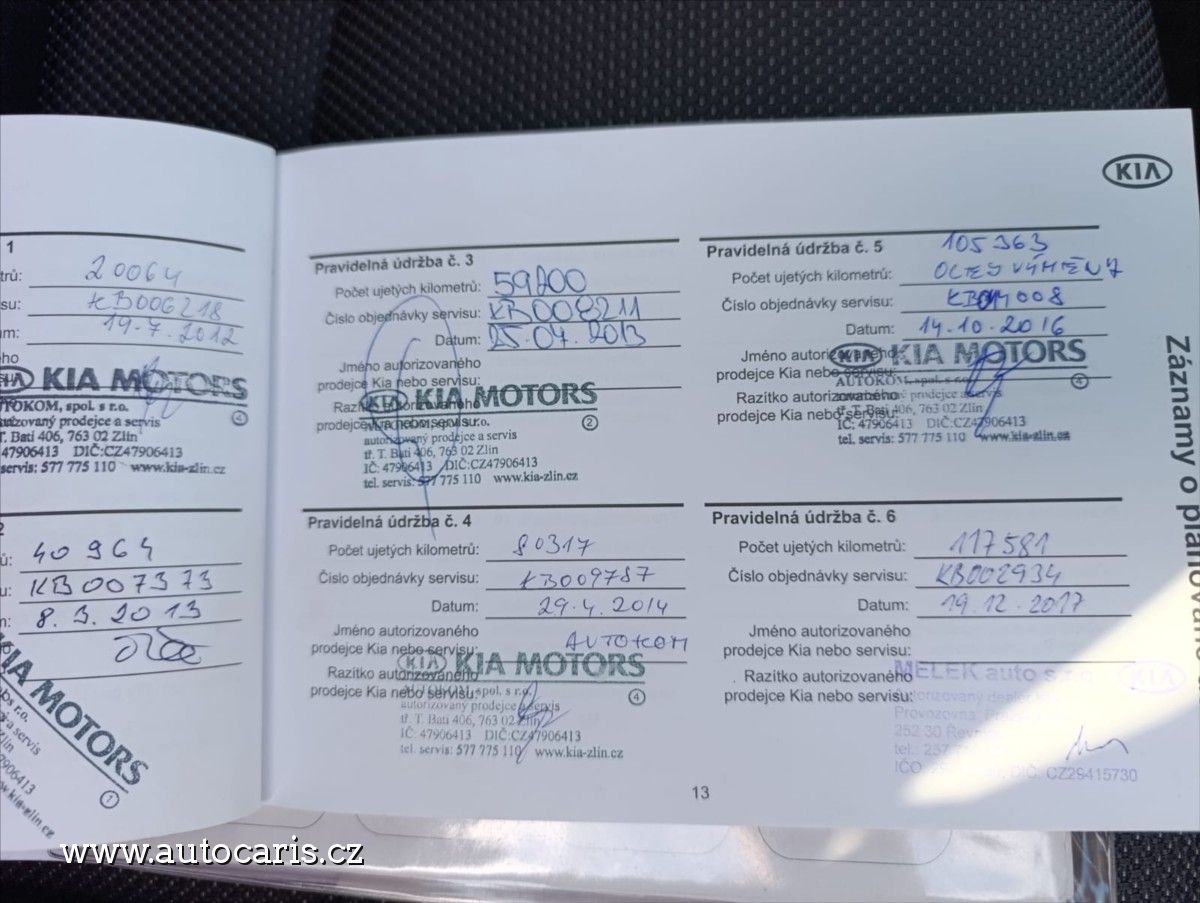 1
trů: 20064
su: KB006218
m: 19.7.2012
ho
KIA MOTORS
TOKOM, spol. s r.o.
prodejce a servis
T. Bati 406, 763 02 Zlín
47906413 DIČ:CZ47906413
servis: 577 775 110 www.kia-zlin.cz
2
40964
KB007373
8.3.2013
KIA MOTORS
1
Pravidelná údržba č. 3
Počet ujetých kilometrů:
Číslo objednávky servisu: KB008211
Datum:
Jméno autorizovaného
prodejce Kia nebo servisu:
KIA KIA MOTORS
2
autorizovaný prodejce a servis
tř. T. Bati 406, 763 02 Zlín
IČ: 47906413 DIČ:CZ47906413
tel. servis: 577 775 110 www.kia-zlin.cz
Pravidelná údržba č. 4
Počet ujetých kilometrů: 80317
Číslo objednávky servisu: KB009787
Datum: 29.4.2014
Jméno autorizovaného AUTOKOM
prodejce Kia nebo servisu:
KIA KIA MOTORS
Razítko autorizovaného
prodejce Kia nebo servisu: spol. s r.o. 4
autorizovaný prodejce a servis
tř. T. Bati 406, 763 02 Zlín
IČ: 47906413 DIČ:CZ47906413
tel. servis: 577 775 110 www.kia-zlin.cz
KIA
Pravidelná údržba č. 5 105363
Počet ujetých kilometrů:
Číslo objednávky servisu:
Datum: 14.10.2016
Jméno autorizovaného
KIA KIA MOTORS
prodejce Kia nebo servisu:
AUTOKOM, spol. s r.o. 4
Razítko autorizovaného prodejce a servis
prodejce Kia nebo servisu: tř. T. Bati 406, 763 02 Zlín
IČ: 47906413 DIČ:CZ47906413
tel. servis: 577 775 110 www.kia-zlin.cz
Pravidelná údržba č. 6
Počet ujetých kilometrů: 117581
Číslo objednávky servisu: KB002934
Datum: 19.12.2017
Jméno autorizovaného
prodejce Kia nebo servisu:
MELEK auto s.r.o. KIA
Razítko autorizovaného
prodejce Kia nebo servisu:
Provozovna:
252 30
tel.:
IČO: DIČ: CZ29415730
13
Záznamy o
www.autocaris.cz